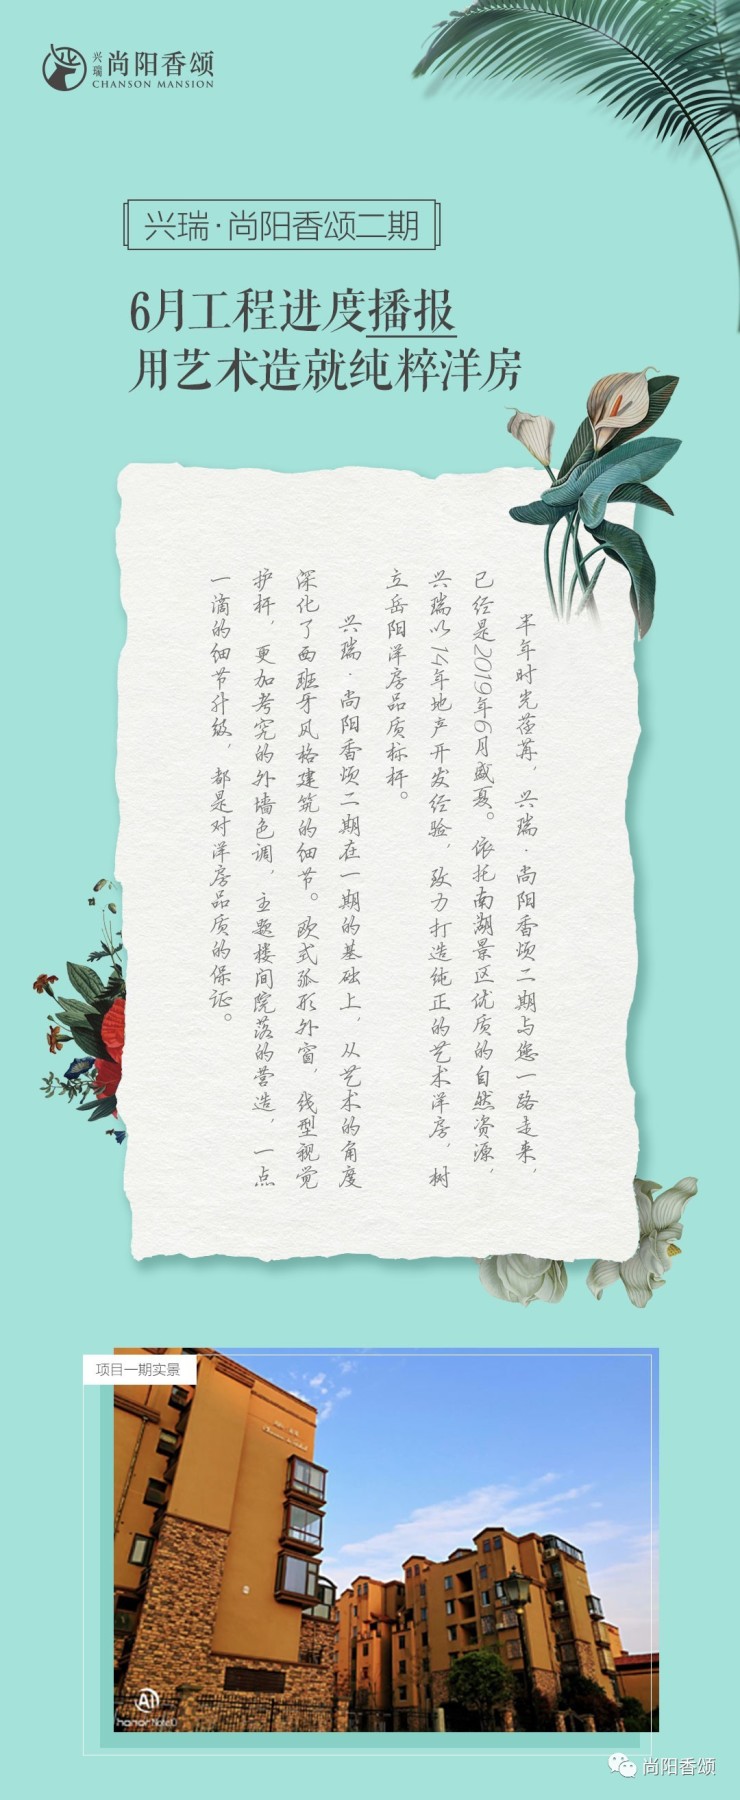 兴瑞
尚阳香颂
CHANSON MANSION
兴瑞·尚阳香颂二期
6月工程进度播报
用艺术造就纯粹洋房
半年时光荏苒，兴瑞·尚阳香颂二期与您一路走来，
已经是2019年6月盛夏。依托南湖景区优质的自然资源，
兴瑞以14年地产开发经验，致力打造纯正的艺术洋房，树
立岳阳洋房品质标杆。
兴瑞·尚阳香颂二期在一期的基础上，从艺术的角度
深化了西班牙风格建筑的细节。欧式弧形外窗，线型视觉
护杆，更加考究的外墙色调，主题楼间院落的营造，一点
一滴的细节升级，都是对洋房品质的保证。
项目一期实景
AI
honor Note10
尚阳香颂